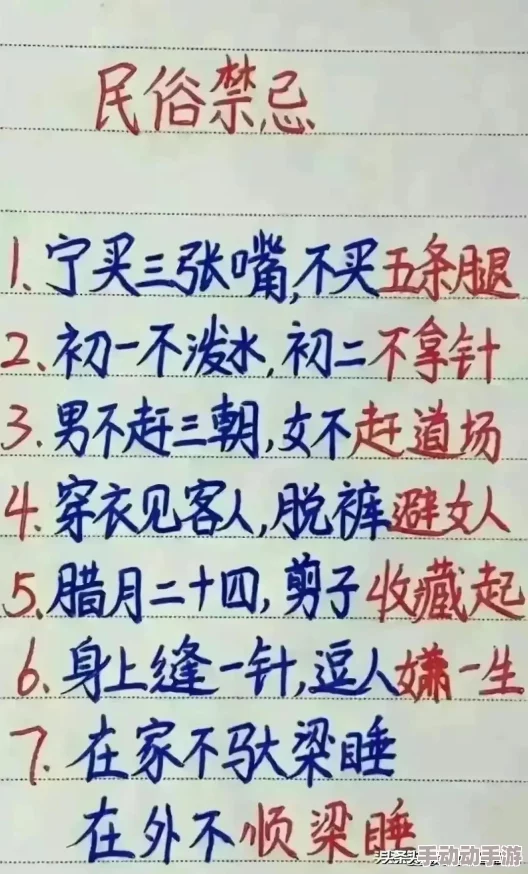 民俗禁忌
1.宁买三张嘴,不买五条腿
2.初一不泼水,初二不拿针
3.男不赶三朝,女不赶道场
4.穿衣见客人,脱裤避女人
5.腊月二十四,剪子收藏起
6.身上缝一针,逗人嫌一生
7.在家不驮梁睡
在外不顺梁睡
手动动手游